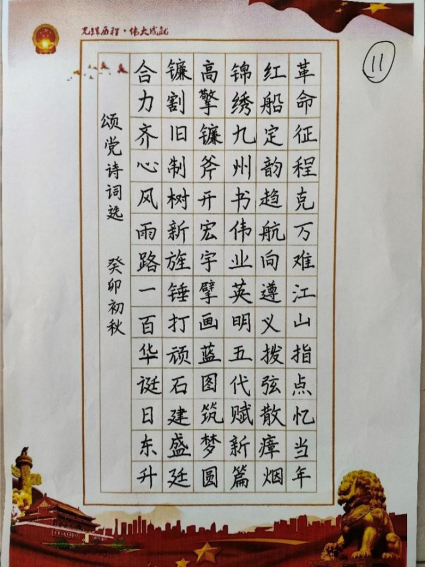 光辉历程·伟大成就
⑪
革命征程克万难江山指点忆当年
红船定韵趋航向遵义拨弦散瘴烟
锦绣九州书伟业英明五代赋新篇
高擎镰斧开宏宇擘画蓝图筑梦圆
镰割旧制树新旌锤打顽石建盛廷
合力齐心风雨路一百华诞日东升
颂党诗词选 癸卯初秋